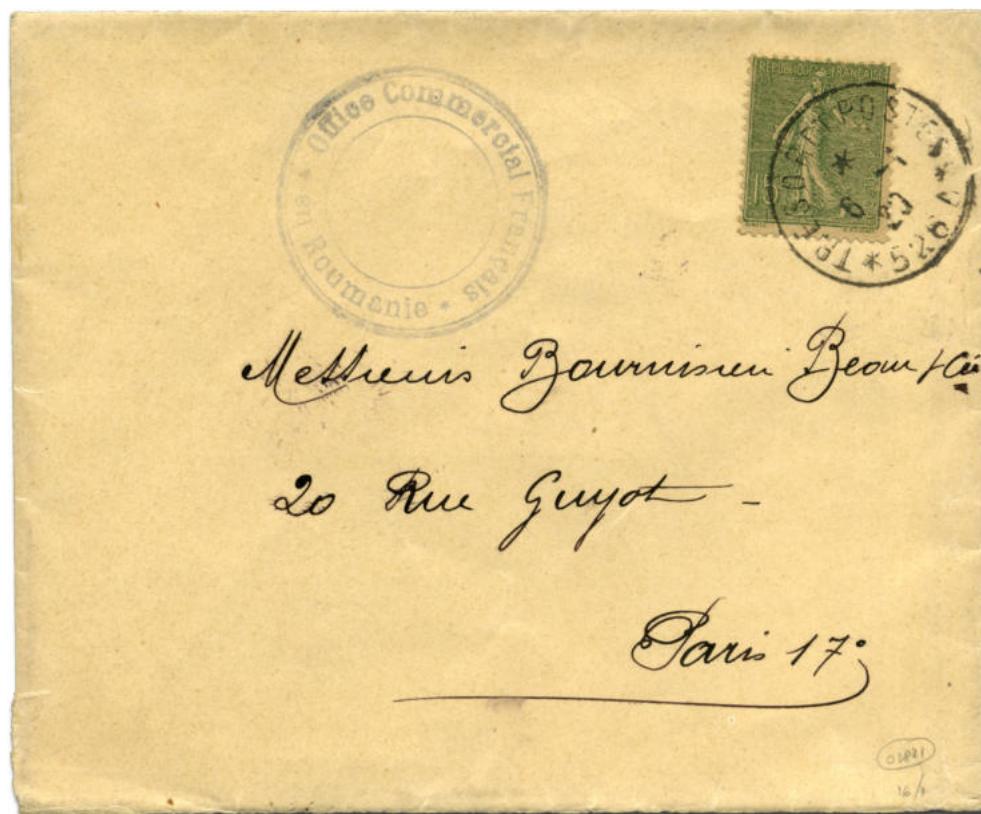 Office Commercial Français
en Roumanie
RÉPUBLIQUE FRANÇAISE
15
TRESOR ET POSTES * 526 *
6 - 1
20
Messieurs Bournisien Beau & Cie
20 Rue Guyot -
Paris 17e